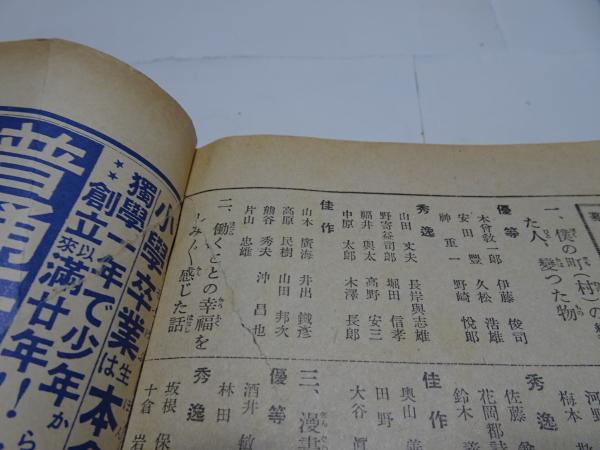 一、僕の町（村）の
た人、變つた物
優等
木曾敎一郎 伊藤俊司
安田豐 久松浩雄
神重一 野崎悅郎
秀逸
山田丈夫 長岸與志雄
野寄益司郎 堀田信孝
福井與太 高野安三
中原太郎 木澤長郎
佳作
山本廣海 井出鐵彦
高原民樹 山田邦次
熊谷秀夫 沖昌也
片山忠雄
二、働くことの幸福を
しみ〴〵感じた話
河野
梅本
秀逸
佐藤
花岡郡
鈴木
佳作
奥山
田野
大谷
三、漫畫
優等
酒井敏
林田
秀逸
坂根保
十倉岩
小學卒業生は本會
獨學年で少年から
創立以來滿廿年!!
普通